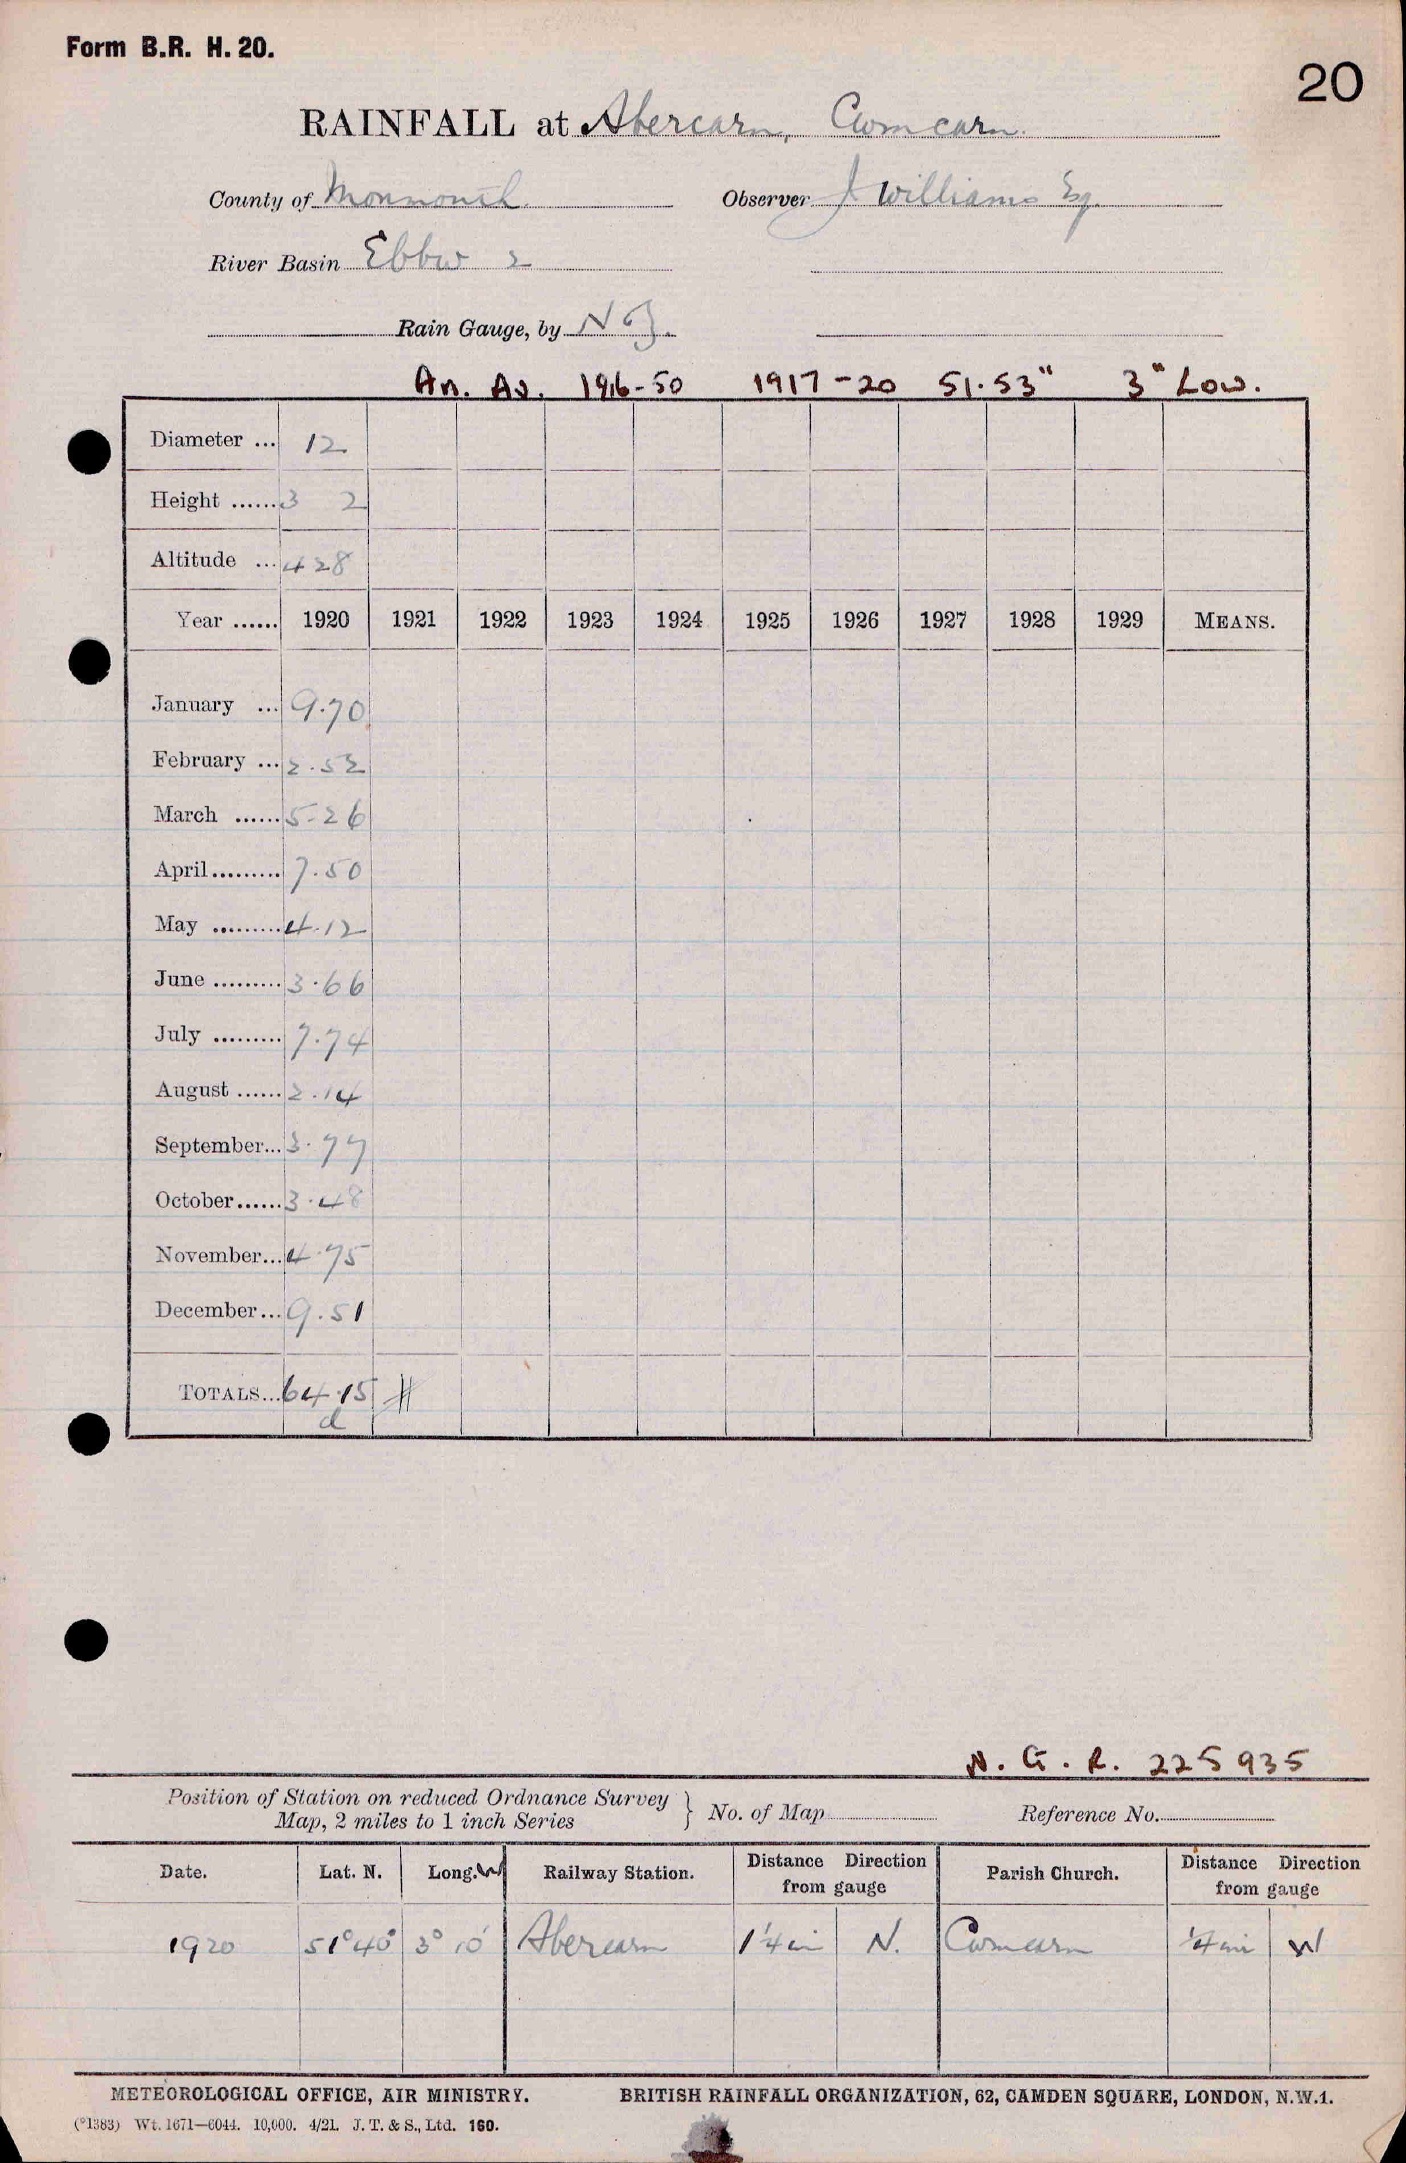 Form B.R. H. 20.
20
RAINFALL at Abercarn, Cwmcarn.
County of Monmouth Observer J Williams Esq.
River Basin Ebbw 2
Rain Gauge, by N & Z.
An. Av. 1916-50 1917-20 51.53" 3" Low.
Diameter ... 12
Height ...... 3 2
Altitude ... 428
Year ...... 1920 1921 1922 1923 1924 1925 1926 1927 1928 1929 MEANS.
January ... 9.70
February ... 2.52
March ...... 5.26
April......... 7.50
May ......... 4.12
June ......... 3.66
July ......... 7.74
August ...... 2.14
September... 3.77
October...... 3.48
November... 4.75
December... 9.51
TOTALS... 64.15 #
d
N. G. R. 225935
Position of Station on reduced Ordnance Survey
Map, 2 miles to 1 inch Series } No. of Map Reference No.
Date. Lat. N. Long. W Railway Station. Distance Direction from gauge Parish Church. Distance Direction from gauge
1920 51° 40' 3° 10' Abercarn 1 1/4 mi N. Cwmcarn 1/4 mi W
METEOROLOGICAL OFFICE, AIR MINISTRY. BRITISH RAINFALL ORGANIZATION, 62, CAMDEN SQUARE, LONDON, N.W.1.
(*1383) Wt. 1671—6044. 10,000. 4/21. J. T. & S., Ltd. 160.